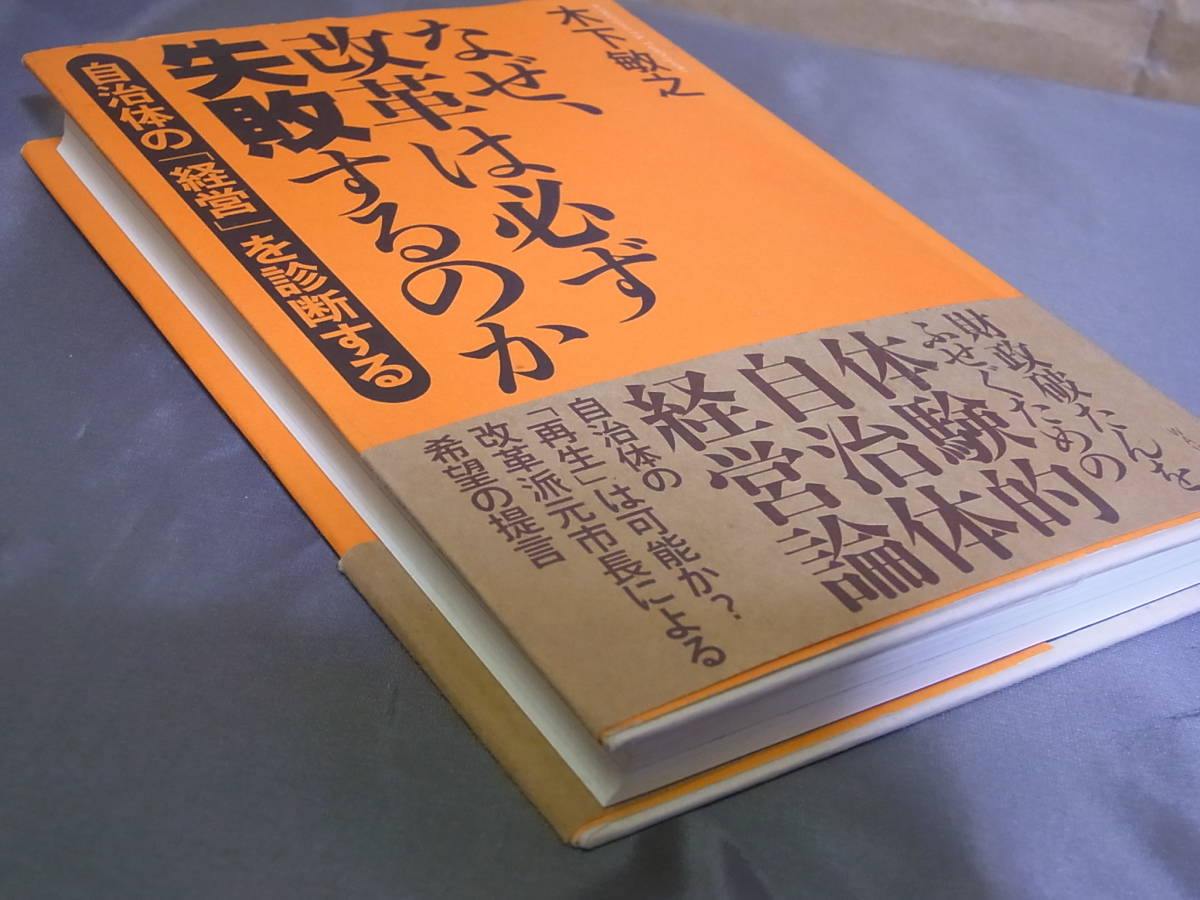 木下敏之
なぜ、
改革は必ず
失敗するのか
自治体の「経営」を診断する
財政破たんを
ふせぐための
体験的
自治体
経営論
自治体の
「再生」は可能か?
改革派元市長による
希望の提言